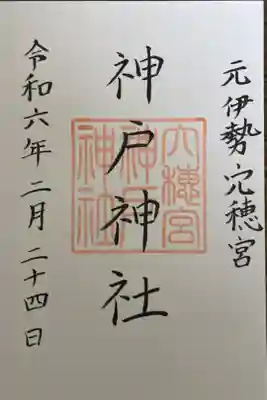 元伊勢穴穂宮
神戸神社
令和六年二月二十四日
穴穂宮
神戸
神社